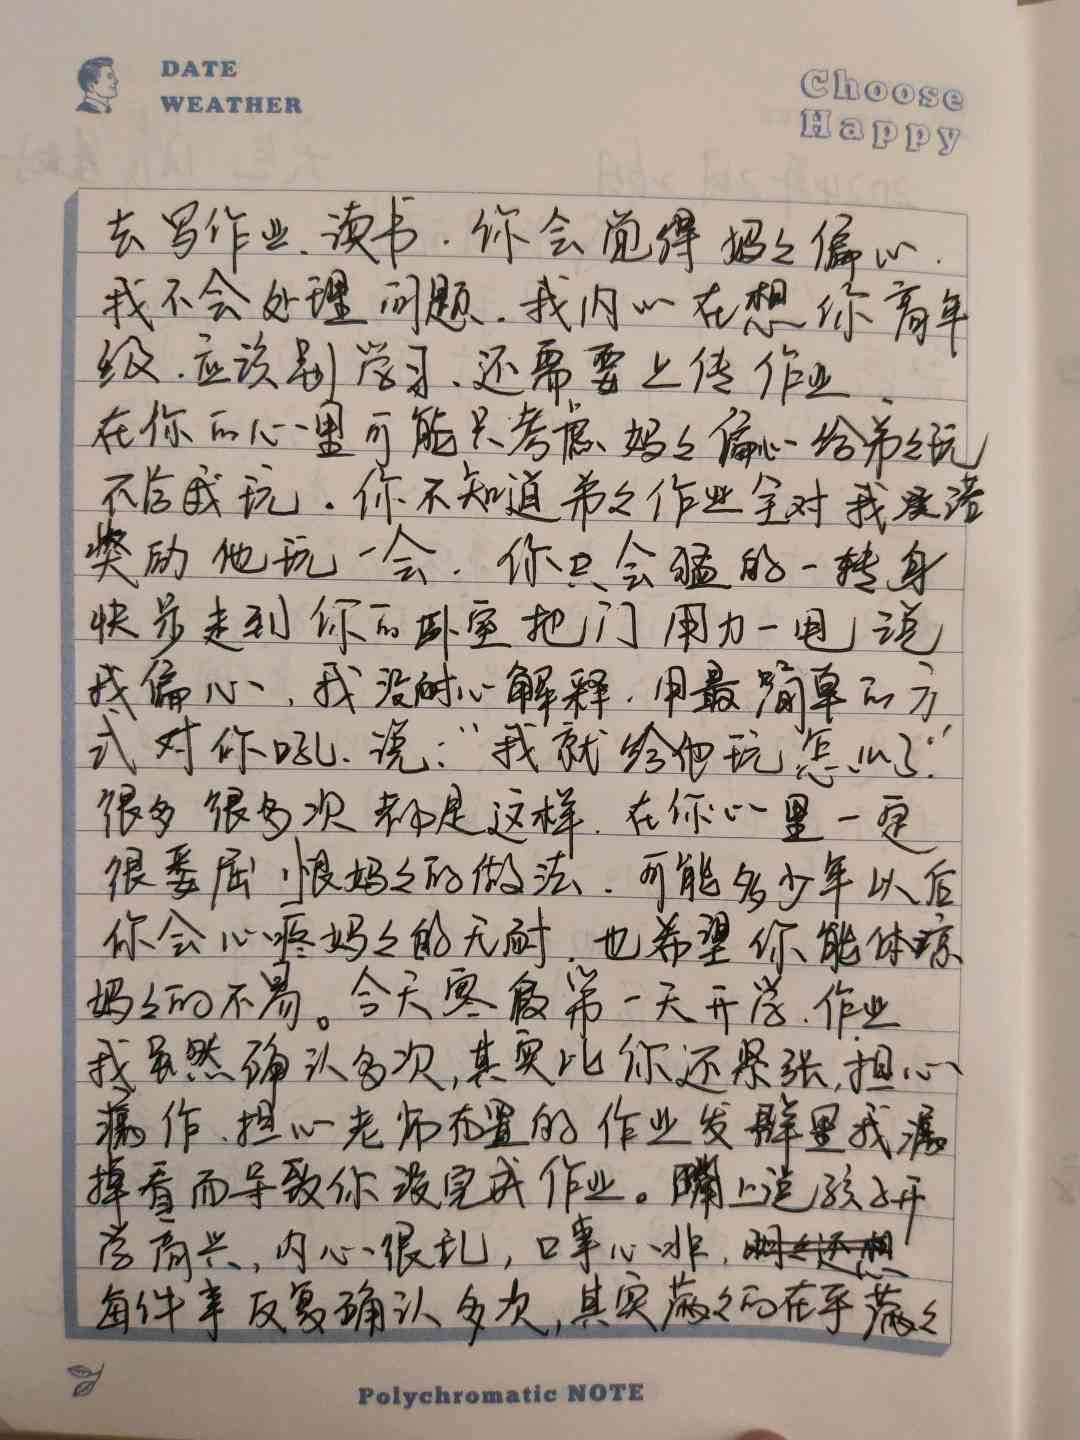 DATE
WEATHER
Choose
Happy
去写作业、读书.你会觉得妈々偏心.
我不会处理问题.我内心在想你高年
级.应该是到学习、还需要上传作业.
在你的心里可能只考虑妈々偏心给弟々玩
不给我玩.你不知道弟々作业全对我承诺
奖励他玩一会.你只会猛的一转身
快步走到你的卧室把门用力一甩说
我偏心,我没耐心解释.用最简单的方
式对你吼.说:“我就给他玩怎么了.”
很多很多次都是这样.在你心里一定
很委屈恨妈々的做法.可能多少年以后
你会心疼妈々的无耐.也希望你能体谅
妈々的不易。今天寒假第一天开学.作业
我虽然确认多次,其实比你还紧张,担心
漏作、担心老师布置的作业发群里我漏
掉看而导致你没完成作业。嘴上说孩子开
学高兴,内心很乱,口事心非,
每件事反复确认多次,其实满々的在乎满々
Polychromatic NOTE